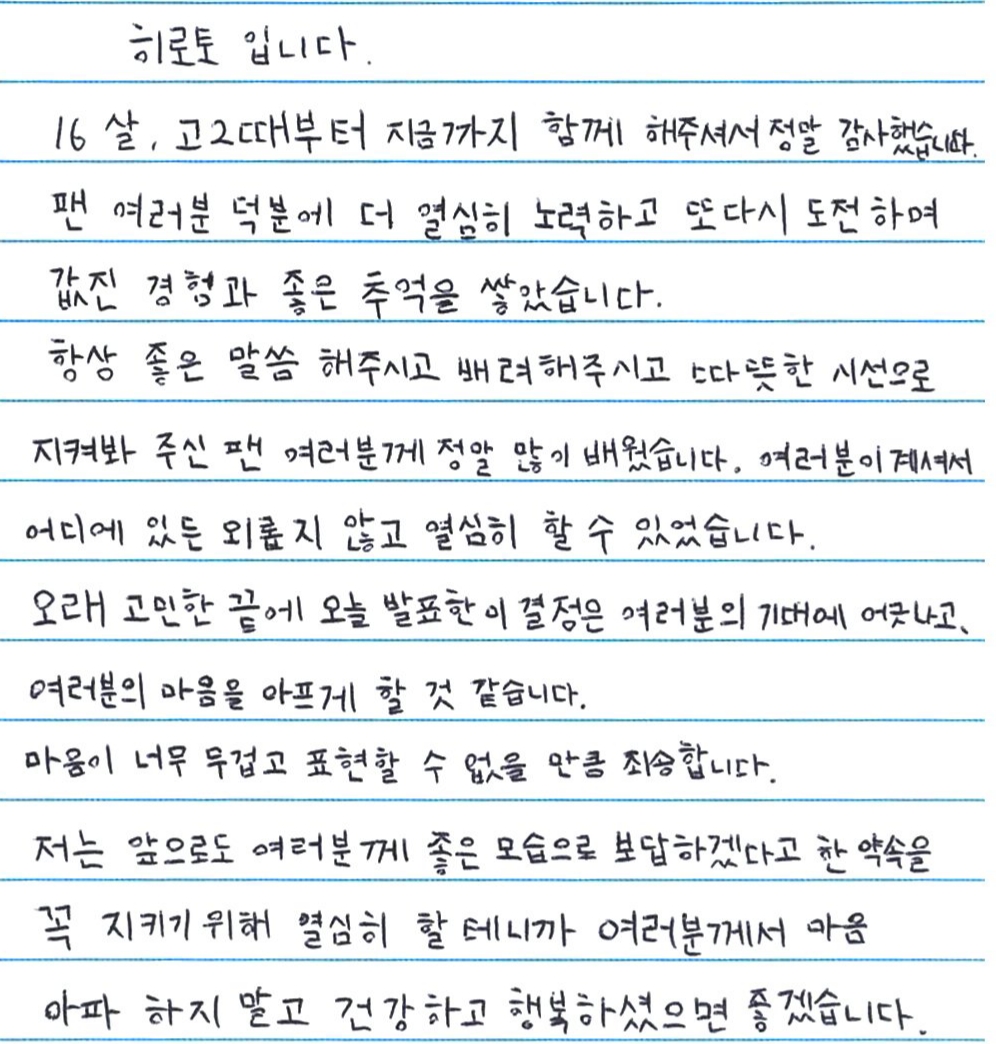 히로토 입니다.
16살, 고2때부터 지금까지 함께 해주셔서 정말 감사했습니다.
팬 여러분 덕분에 더 열심히 노력하고 또다시 도전하며
값진 경험과 좋은 추억을 쌓았습니다.
항상 좋은 말씀 해주시고 배려해주시고 따뜻한 시선으로
지켜봐 주신 팬 여러분께 정말 많이 배웠습니다. 여러분이 계셔서
어디에 있든 외롭지 않고 열심히 할 수 있었습니다.
오래 고민한 끝에 오늘 발표한 이 결정은 여러분의 기대에 어긋나고、
여러분의 마음을 아프게 할 것 같습니다.
마음이 너무 무겁고 표현할 수 없을 만큼 죄송합니다.
저는 앞으로도 여러분께 좋은 모습으로 보답하겠다고 한 약속을
꼭 지키기 위해 열심히 할 테니까 여러분께서 마음
아파 하지 말고 건강하고 행복하셨으면 좋겠습니다.